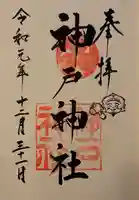 奉拝
神戸神社
令和元年十二月三十一日